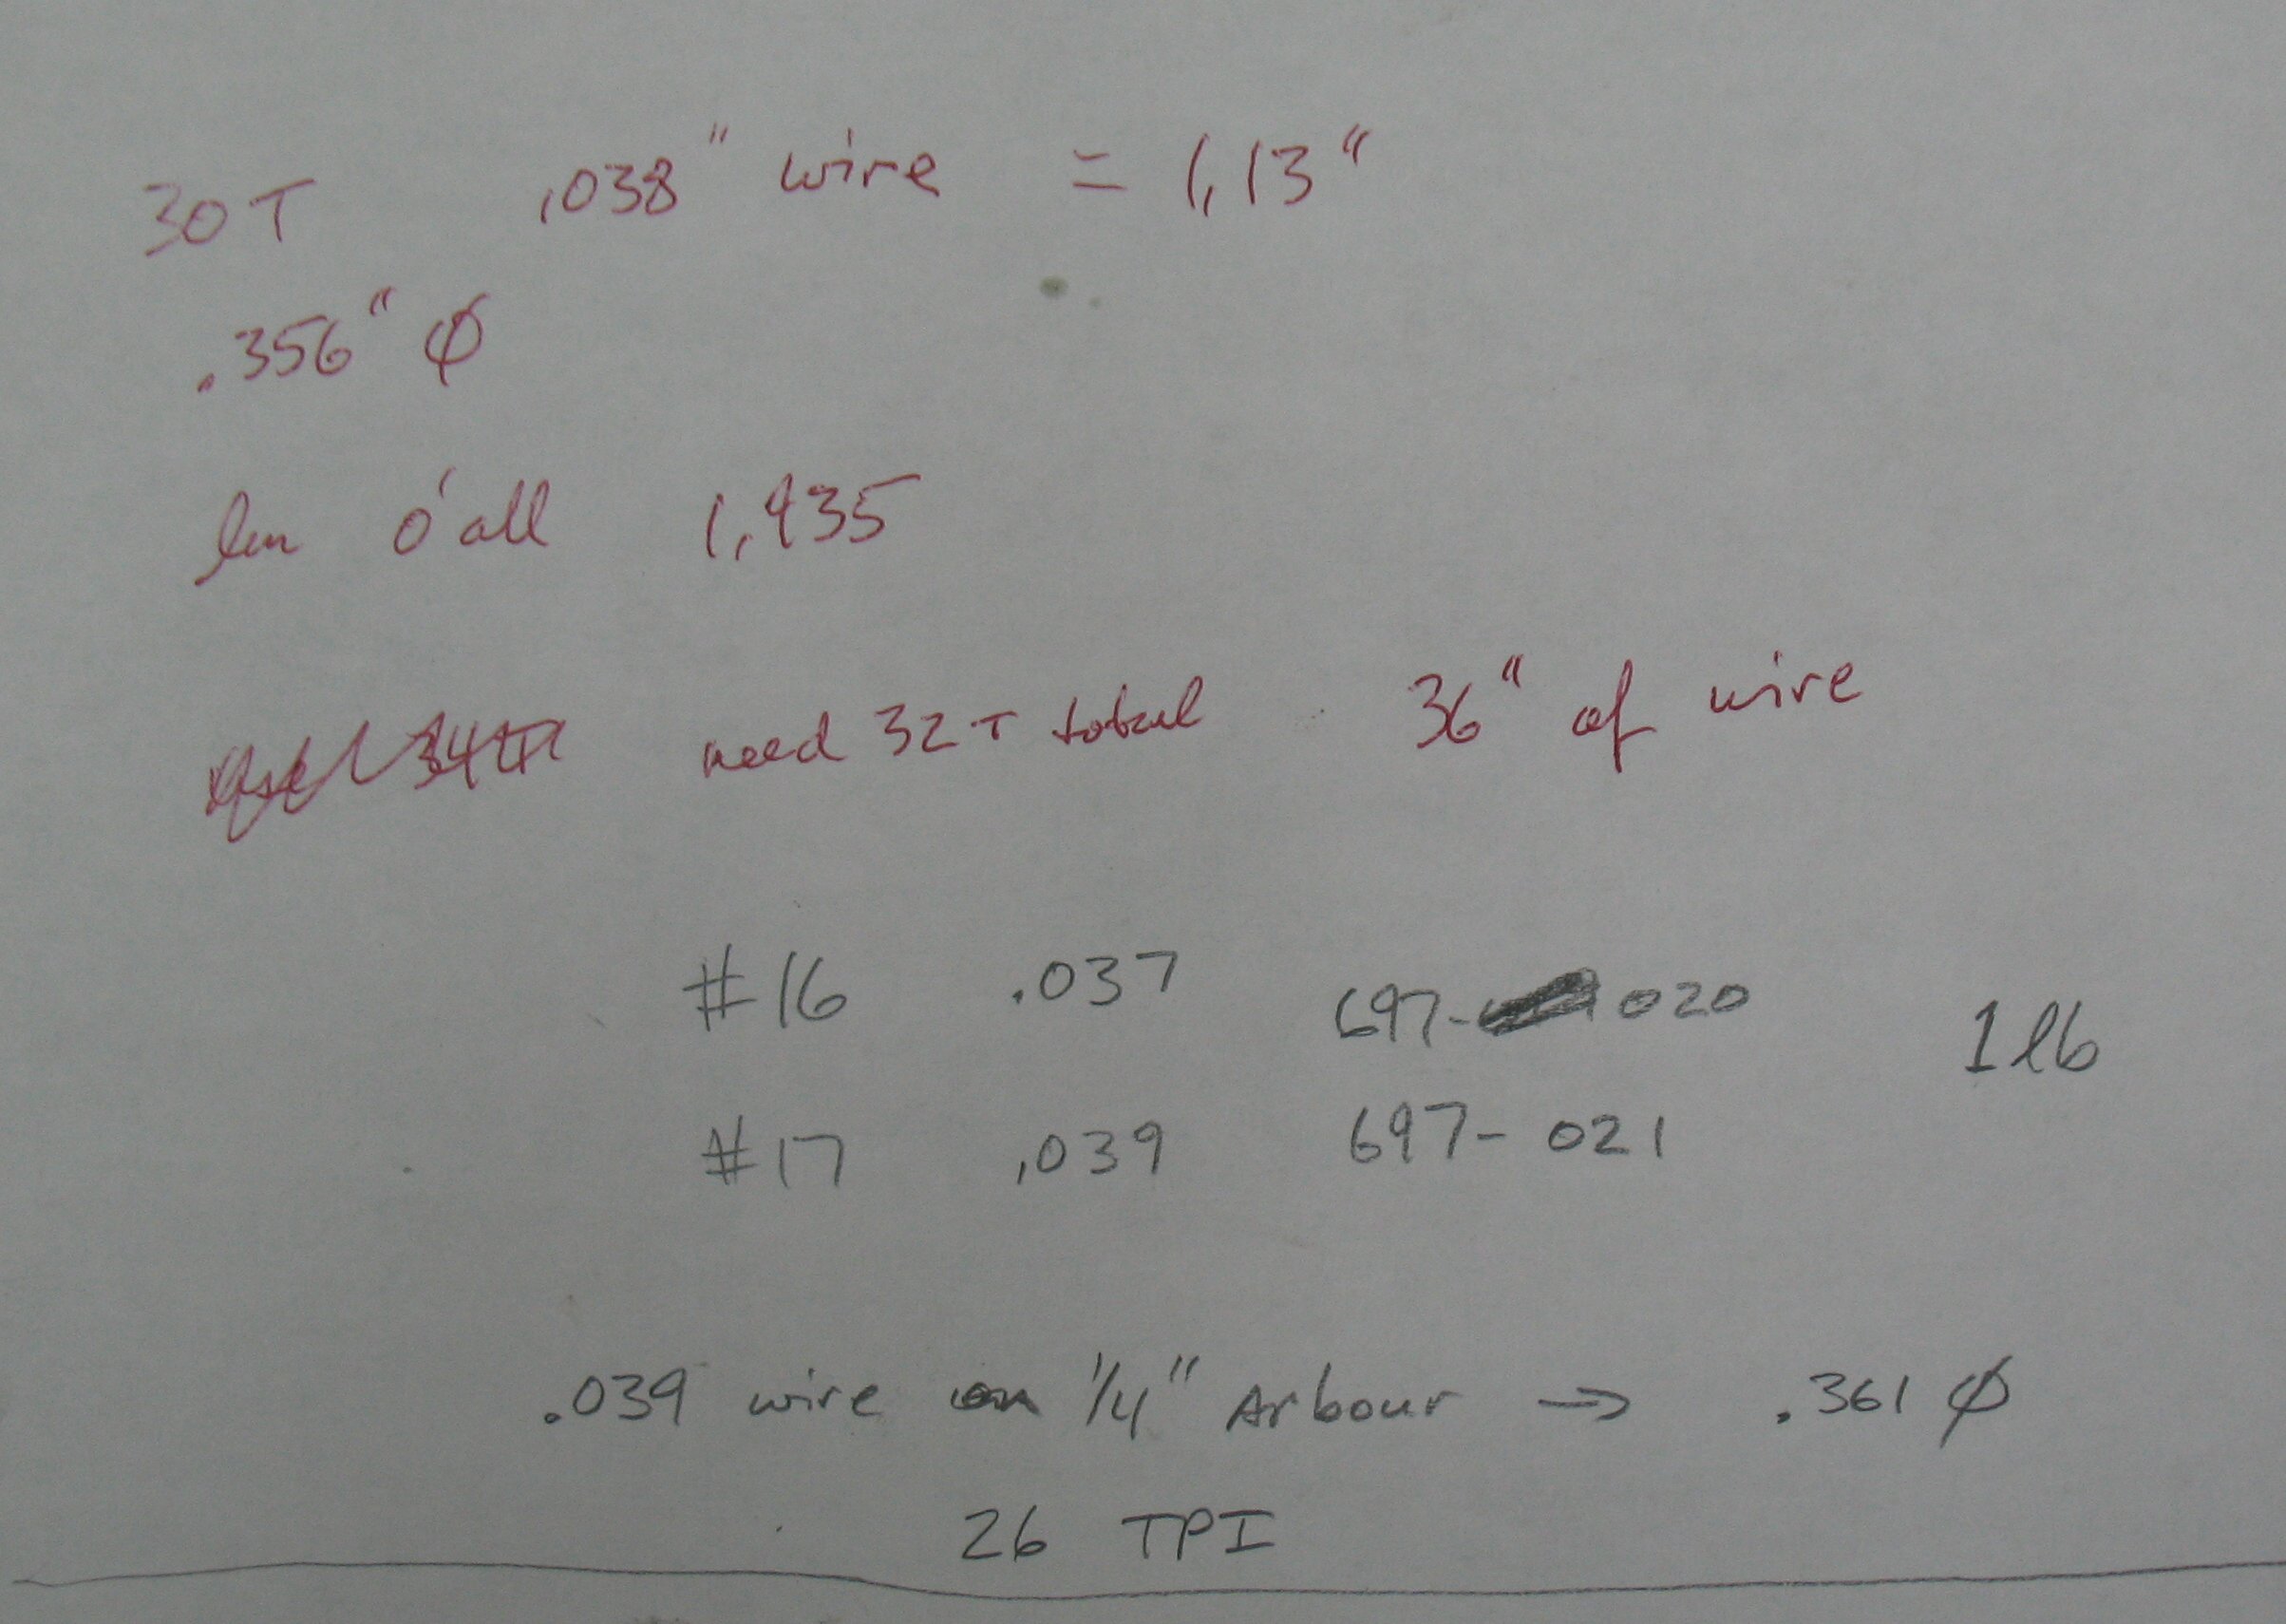 30T .038" wire = 1.13"
.356" ø
len o'all 1.935
need 32T total 36" of wire
#16 .037 697- 020 1 lb
#17 .039 697- 021
.039 wire on 1/4" Arbour → .361 ø
26 TPI